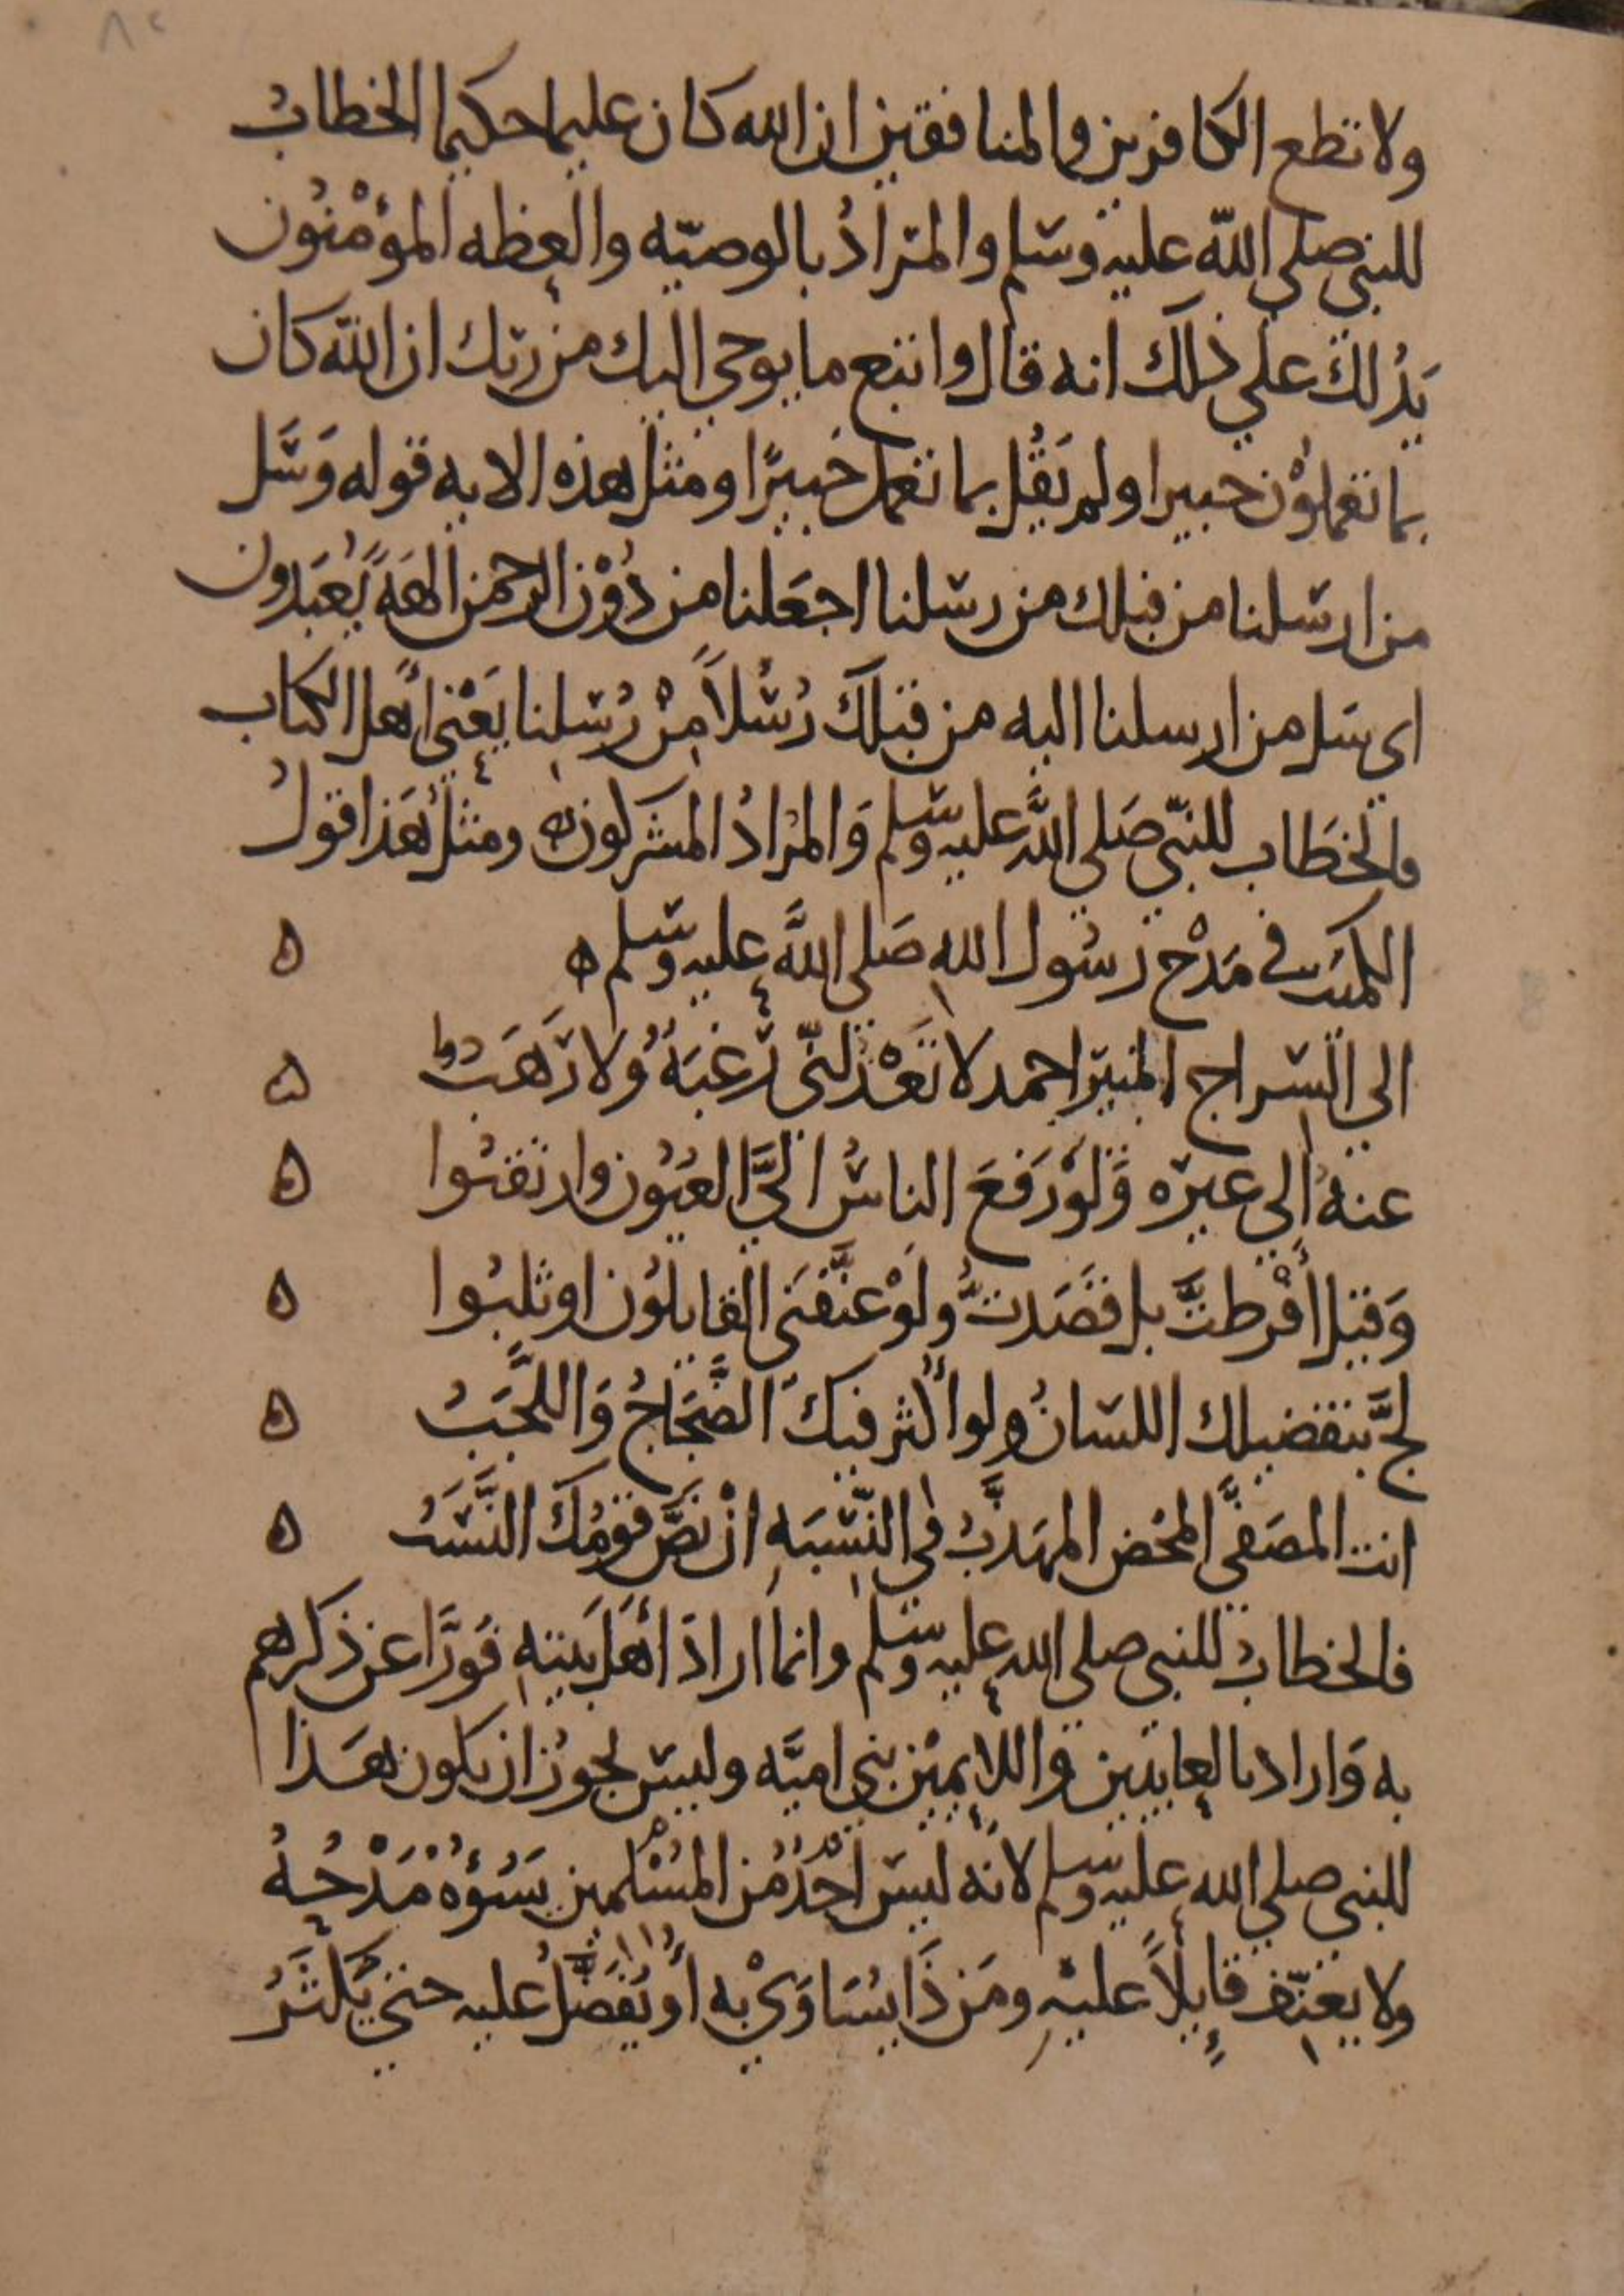 ٨٢
ولا تطع الكافرين والمنافقين ان الله كان عليما حكيما الخطابُ
للنبي صلى اللّه عليه وسلم والمرادُ بالوصيّه والعِظه المؤْمنُون
يَدُلكَ علي ذلك انه قال واتبع ما يوحي اليك من ربّك ان اللّه كان
بما تعملوْن خبيرا ولم يَقُل بما تعمل خَبيرًا ومثل هذه الايه قوله وَسَل
من ارسلنا من قبلك من رسلنا اجعَلنا من دُوْن الرحمن الهَةً يُعبَدون
اي سل من ارسلنا اليه من قبلكَ رُسُلاً مِنْ رُسِلنا يَعْني أَهل الكتاب
فالخطَاب للنّبي صَلى اللَّه عليه وسلم وَالمرَادُ المشركون ه ومثلُ هَذا قولُ
الكميت في مَدْح رسُول اللهِ صَلى اللَّه عليه وسلم ه ه
الى السّراج المنيرِ احمد لا تَعْدلنّي رَغبَةُ وَلا رَهَبُ ه
عنهُ إِلى غيرِه وَلوْ رَفعَ الناسُ اليَّ العيُون وارتقبُوا ه
وَقيل أفْرطتَّ بل قصَدتُّ ولَوْ عنَّفَني القايلوُن او ثلبُوا ه
لجَّ بتفضيلك اللسانُ ولو أُكثر فيكَ الضَّجَاجُ وَاللَّجَبُ ه
انت المصَفَّى المحْض المهذَّبُ في النِّسبَهِ انْ نصَّ قومُكَ النَّسَبُ ه
فالخطابُ للنبي صلى الله عليه وسلم وانما ارادَ أهَل بيتهِ فوَرَّا عن ذكرهم
به وَاراد بالعايبين واللايمين بني اميَّه وليس يجوزُ ان يكون هَذا
للنبي صلى الله عليه وسلم لانَّه ليسَ احَدٌ مُن المُسْلمين يَسُؤُهُ مَدْحُهُ
ولا يعنّف قايِلاً عليْهِ ومَن ذَا يسَاوَيْ به أَو يُفَضَّلُ عليه حتى يَكثُرُ